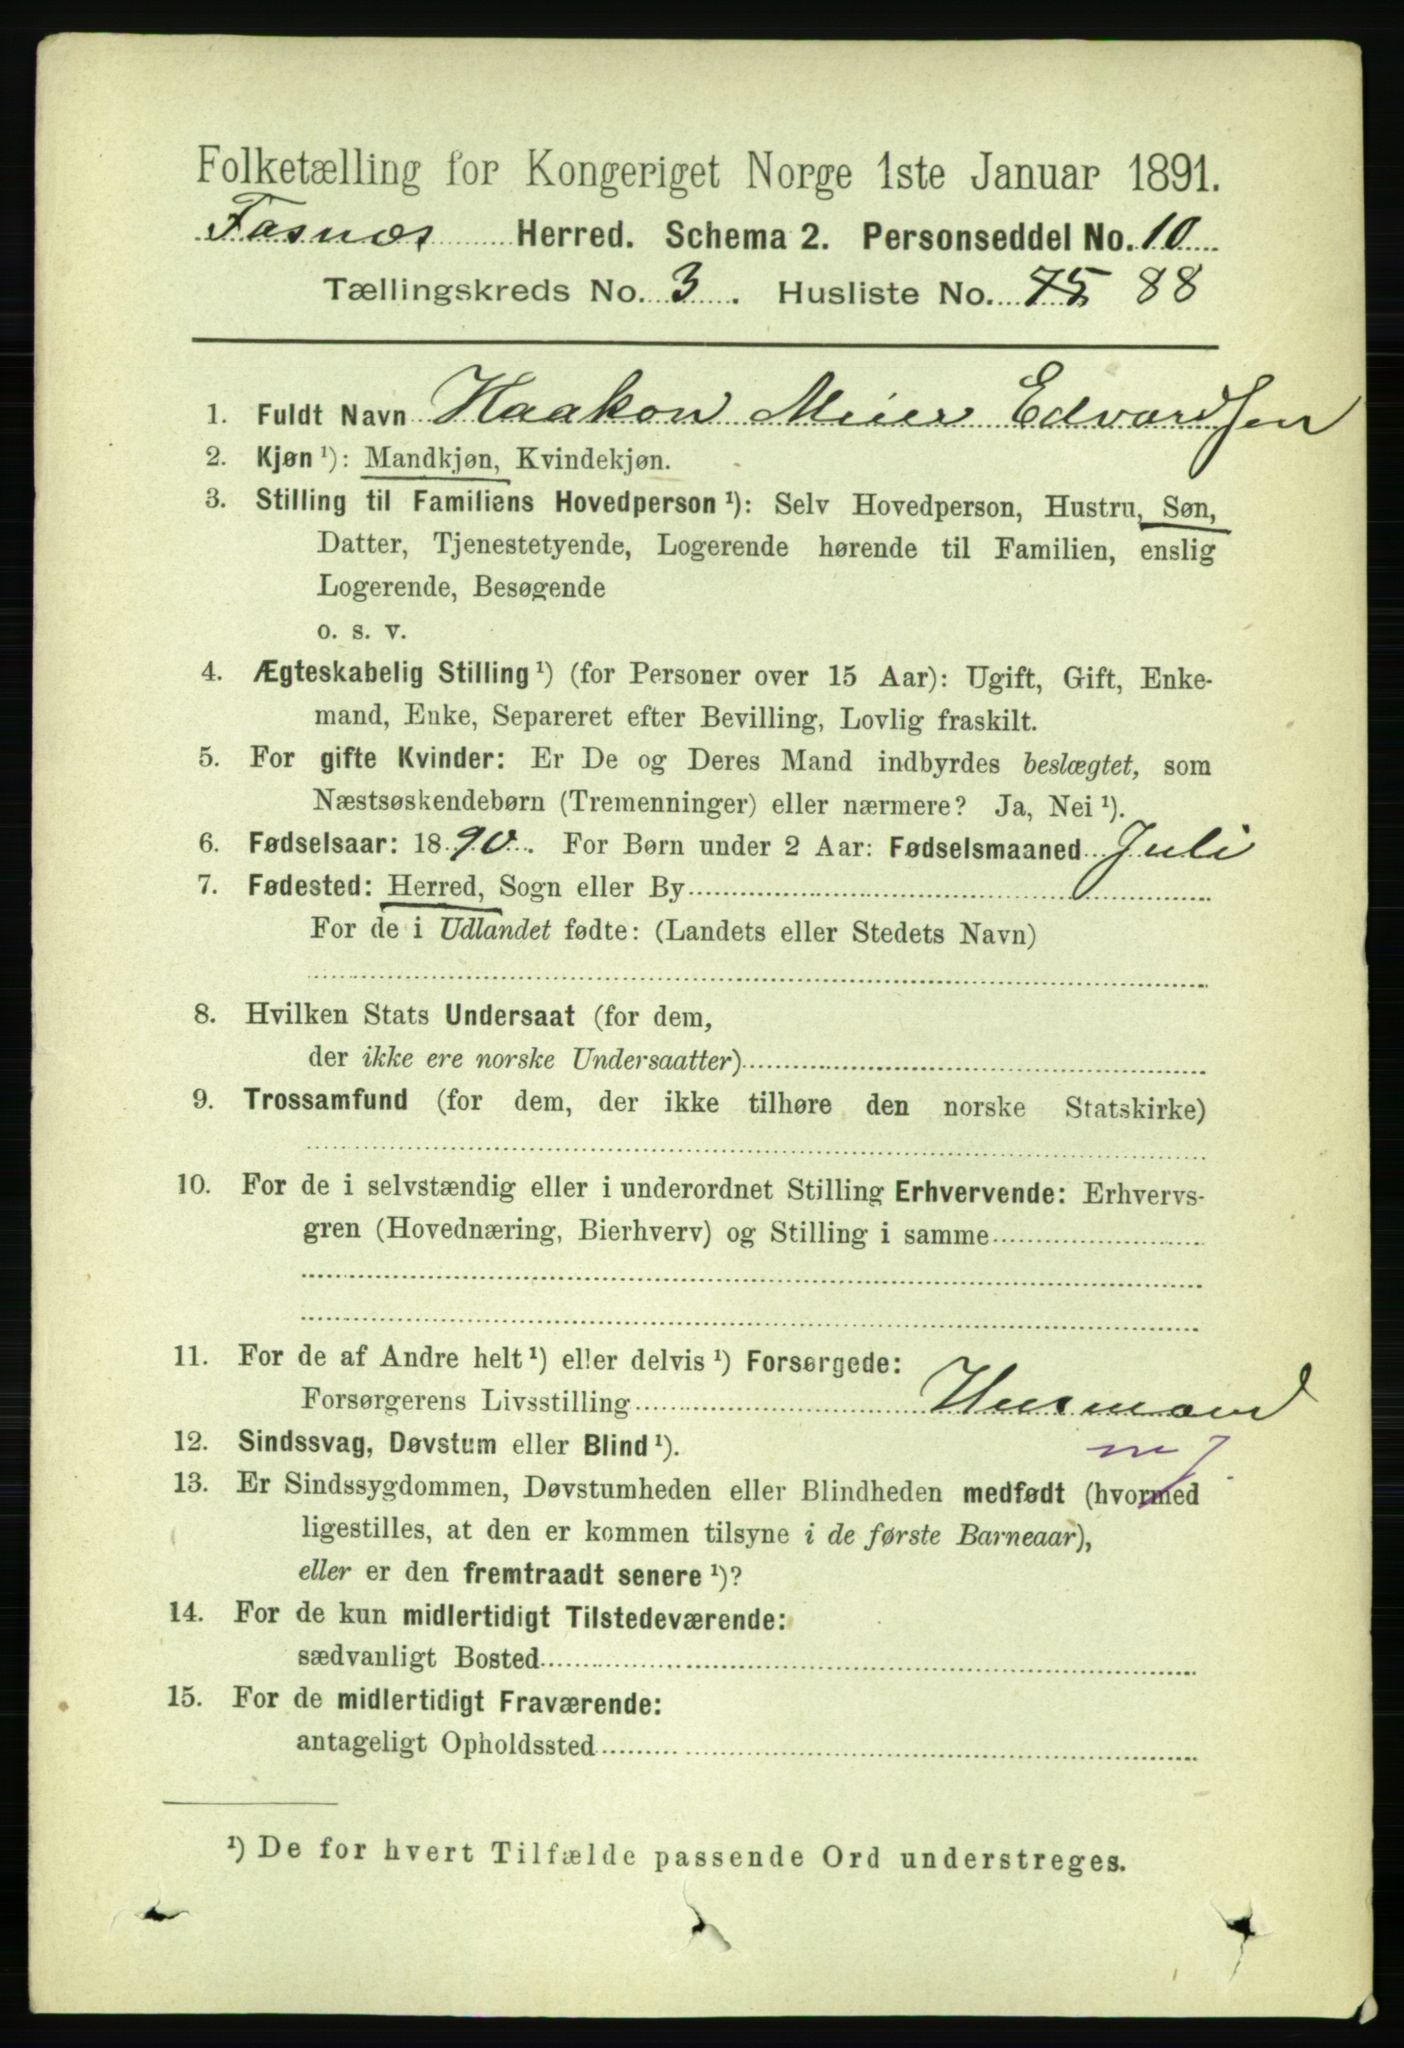 Folketælling for Kongeriget Norge 1ste Januar 1891.
Fosnæs Herred. Schema 2. Personseddel No. 10
Tællingskreds No. 3. Husliste No. 75 88
1. Fuldt Navn Haakon Meier Edvardsen
2. Kjøn ¹): Mandkjøn, Kvindekjøn.
3. Stilling til Familiens Hovedperson ¹): Selv Hovedperson, Hustru, Søn,
Datter, Tjenestetyende, Logerende hørende til Familien, enslig
Logerende, Besøgende
o. s. v.
4. Ægteskabelig Stilling ¹) (for Personer over 15 Aar): Ugift, Gift, Enke-
mand, Enke, Separeret efter Bevilling, Lovlig fraskilt.
5. For gifte Kvinder: Er De og Deres Mand indbyrdes beslægtet, som
Næstsøskendebørn (Tremenninger) eller nærmere? Ja, Nei ¹).
6. Fødselsaar: 1890. For Børn under 2 Aar: Fødselsmaaned Juli
7. Fødested: Herred, Sogn eller By
For de i Udlandet fødte: (Landets eller Stedets Navn)
8. Hvilken Stats Undersaat (for dem,
der ikke ere norske Undersaatter)
9. Trossamfund (for dem, der ikke tilhøre den norske Statskirke)
10. For de i selvstændig eller i underordnet Stilling Erhvervende: Erhvervs-
gren (Hovednæring, Bierhverv) og Stilling i samme
11. For de af Andre helt ¹) eller delvis ¹) Forsørgede:
Forsørgerens Livsstilling Husmand
12. Sindssvag, Døvstum eller Blind ¹).
13. Er Sindssygdommen, Døvstumheden eller Blindheden medfødt (hvormed
ligestilles, at den er kommen tilsyne i de første Barneaar),
eller er den fremtraadt senere ¹)?
14. For de kun midlertidigt Tilstedeværende:
sædvanligt Bosted
15. For de midlertidigt Fraværende:
antageligt Opholdssted
¹) De for hvert Tilfælde passende Ord understreges.